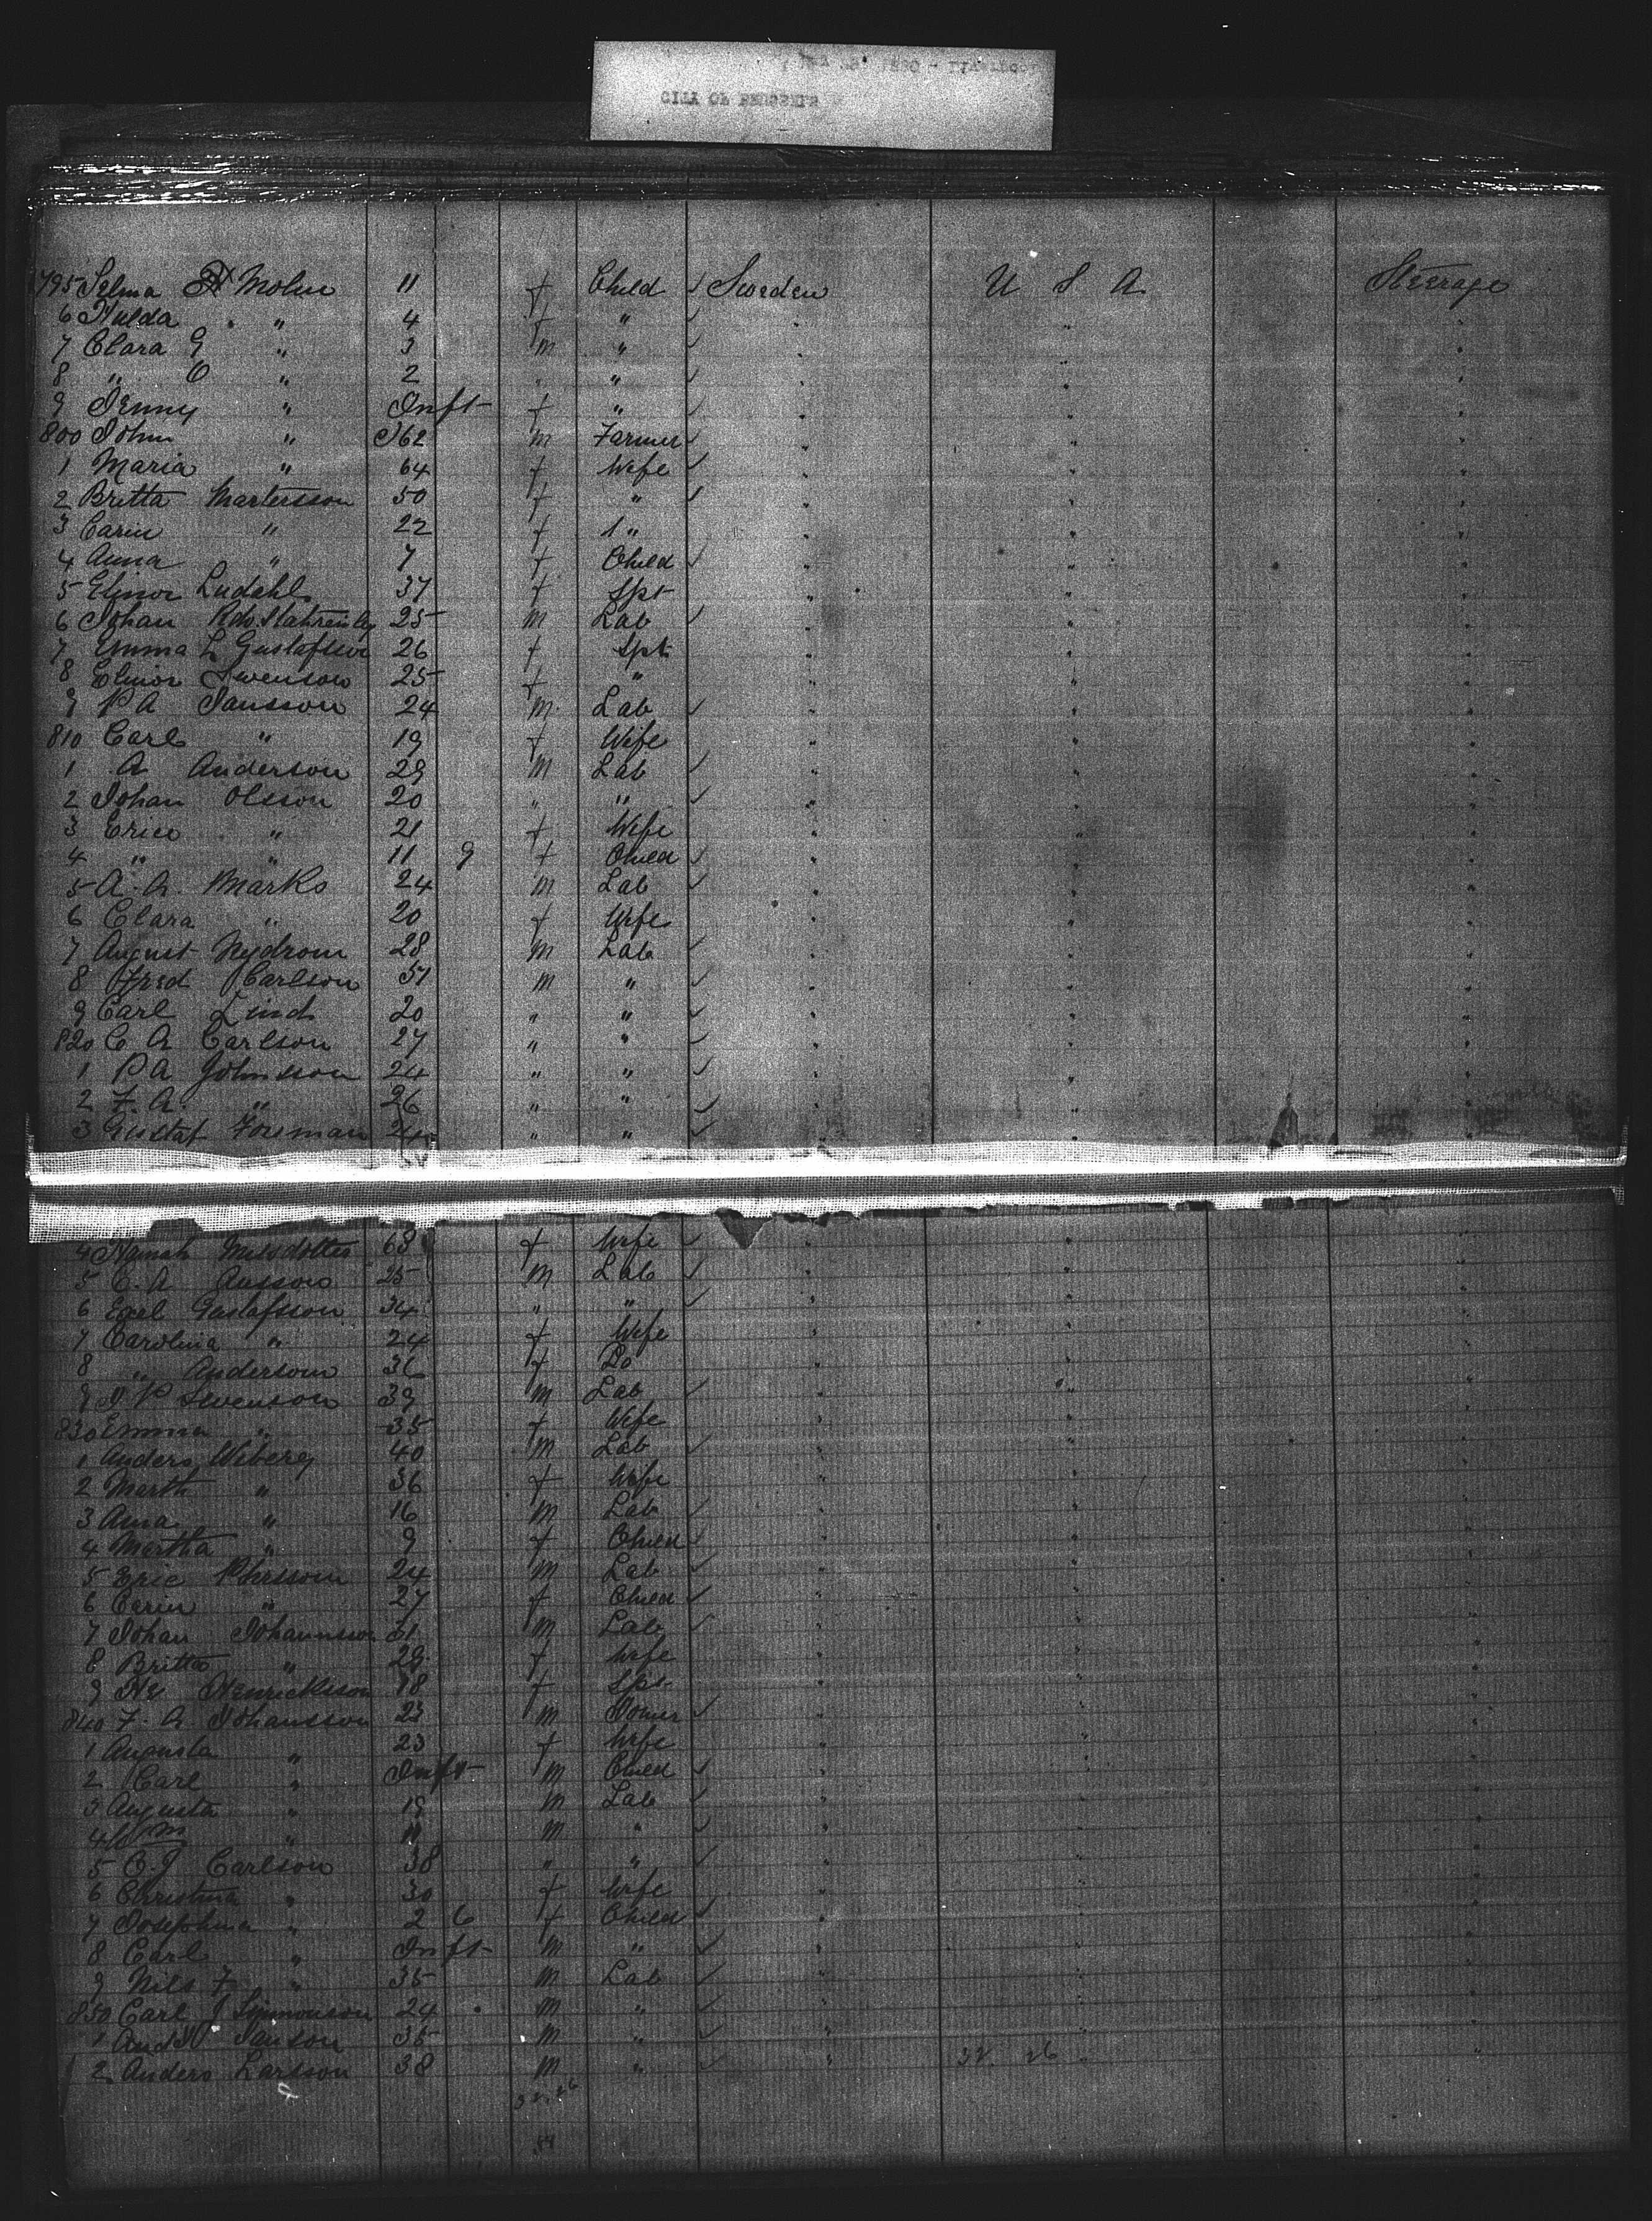 CITY OF
795 Selma Molin 11 f Child ✓ Sweden U S A Steerage
6 Hulda " 4 f " ✓ " " "
7 Clara G " 3 m " ✓ " " "
8 " O " 2 " " ✓ " " "
9 Jenny " Inft f " ✓ " " "
800 John " 62 m Farmer ✓ " " "
1 Maria " 64 f Wife ✓ " " "
2 Britta Martersson 50 f " ✓ " " "
3 Carin " 22 f " " " "
4 Anna " 7 f Child ✓ " " "
5 Elinor 37 f Spt " " "
6 Johan 25 m Lab ✓ " " "
7 Emma L Gustafsson 26 f Spt " " "
8 Elinor Swenson 25 f " " " "
9 P A Jansson 24 m Lab ✓ " " "
810 Carl " 19 f Wife " " "
1 A Anderson 29 m Lab ✓ " " "
2 Johan Olsson 20 " " ✓ " " "
3 Erico " 21 f Wife " " "
4 " " 11 9 f Child ✓ " " "
5 A. A. Marks 24 m Lab ✓ " " "
6 Clara " 20 f Wife " " "
7 August Nydrom 28 m Lab ✓ " " "
8 Fred Carlson 51 m " ✓ " " "
9 Carl Lind 20 " " ✓ " " "
820 C A Carlson 27 " " ✓ " " "
1 P A Johnsson 24 " " ✓ " " "
2 F. A. " 26 " " ✓ " " "
3 Gustaf Forsman 24 " " ✓ " " "
4 Nilsdotter 68 f Wife ✓ " " "
5 C. A 25 m Lab ✓ " " "
6 Gustafsson 34 " " ✓ " " "
7 Carolina " 24 f Wife " " "
8 " Anderson 36 f Do " " "
9 J P Swenson 39 m Lab ✓ " " "
830 Emma " 35 f Wife " " "
1 Anders Weberg 40 m Lab ✓ " " "
2 Marth " 36 f Wife " " "
3 Anna " 16 m Lab ✓ " " "
4 Martha " 9 f Child ✓ " " "
5 Eric 24 m Lab ✓ " " "
6 Carin " 27 f Child ✓ " " "
7 Johan Johannsson 31 m Lab ✓ " " "
8 Britta " 28 f Wife " " "
9 Henrickson 18 f Spt " " "
840 F. A Johansson 23 m ✓ " " "
1 Augusta " 23 f Wife " " "
2 Carl " Inft m Child ✓ " " "
3 Augusta " 19 m Lab ✓ " " "
4 " 11 m " ✓ " " "
5 C. J Carlson 38 " " ✓ " " "
6 Christina " 30 f Wife " " "
7 Josephina " 2 6 f Child ✓ " " "
8 Carl " Inft m " ✓ " " "
9 Nils F " 35 m Lab ✓ " " "
850 Carl J Simmonson 24 m " ✓ " " "
1 Janson 35 m " ✓ " " "
2 Anders Larsson 38 m " ✓ " 32. 26 "